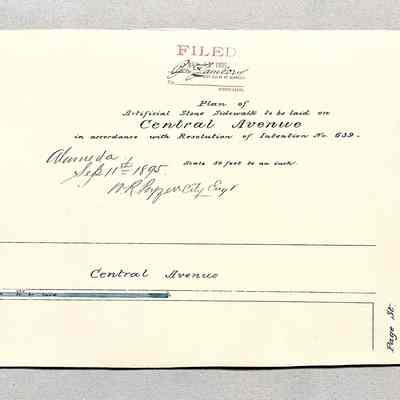 FILED
Plan of
Artificial Stone Sidewalk to be laid on
Central Avenue
in accordance with Resolution of Intention No. 639.
Scale 50 feet to an inch.
Alameda
Sep 11th 1895
City Engr
Central Avenue
Page St.